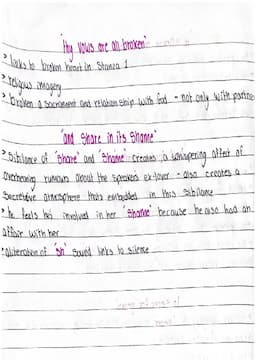 "thy vows are all broken"
> links to broken heart in stanza 1
> religious imagery
> broken a sacrament and relationship with God - not only with partner
"and share in its shame"
> Sibilance of "share" and "shame" creates a whispering affect of
overhearing rumours about the speakers ex-lover - also creates a
secretive atmosphere thats embodied in this sibilance
> he feels he's involved in her "shame" because he also had an
affair with her
> aliteration of "sh" sound links to silence